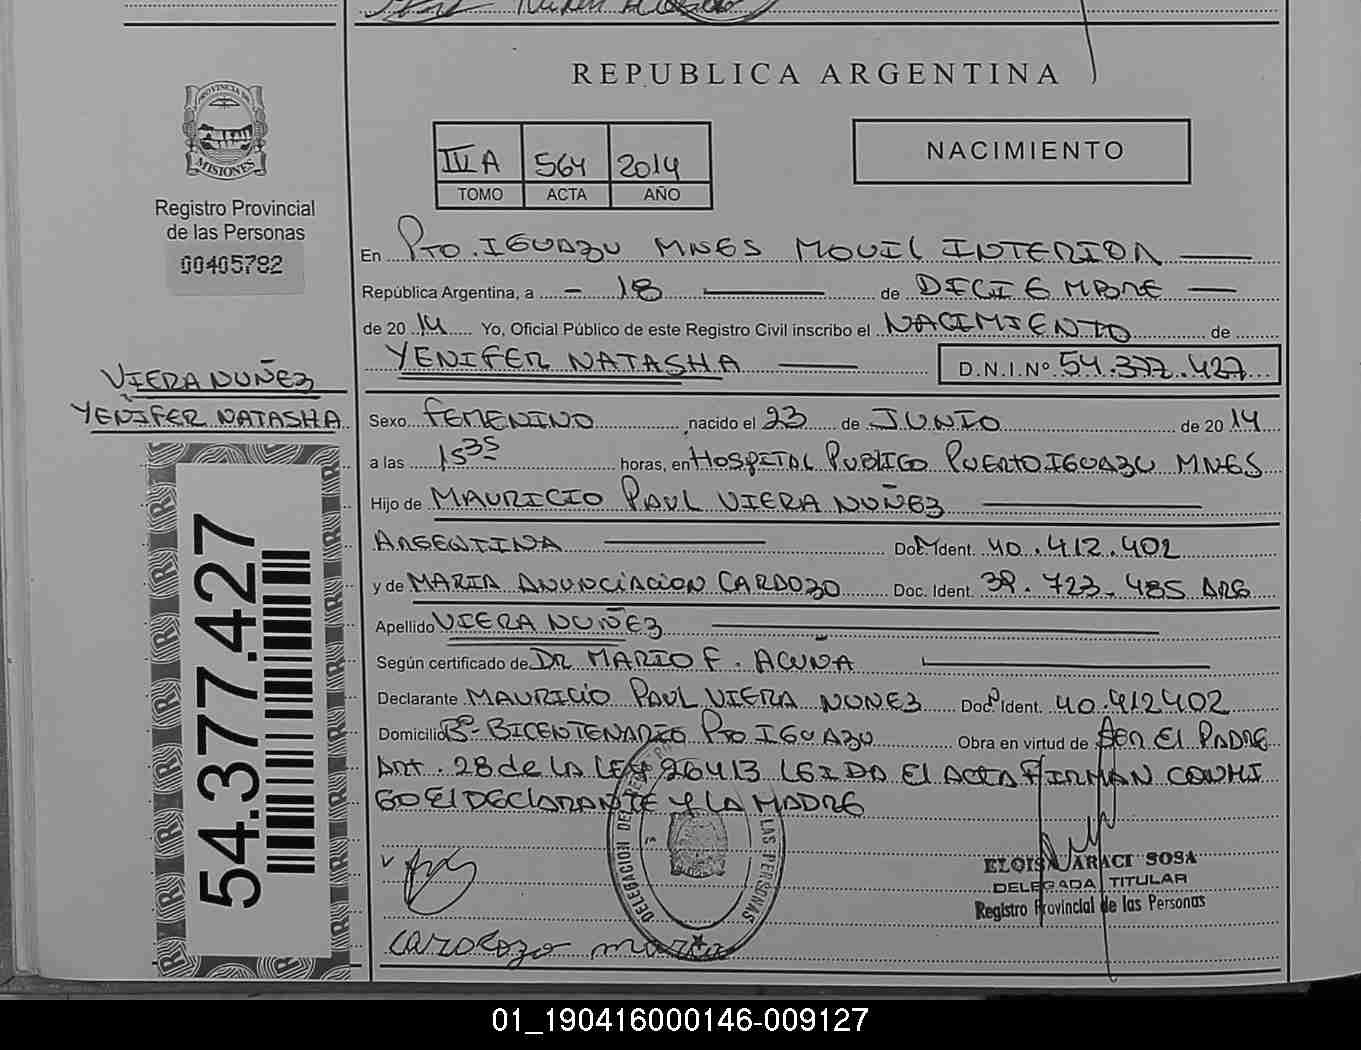 REPUBLICA ARGENTINA
PROVINCIA DE
MISIONES
Registro Provincial
de las Personas
00405782
IV A 564 2014
TOMO ACTA AÑO
NACIMIENTO
En PTO. IGUAZU MNES MOVIL INTERIOR
República Argentina, a - 18 de DICIEMBRE
de 20 14 Yo, Oficial Público de este Registro Civil inscribo el NACIMIENTO de
YENIFER NATASHA D.N.I.Nº 54.377.427
VIERA NUÑEZ
YENIFER NATASHA
Sexo FEMENINO nacido el 23 de JUNIO de 20 14
a las 15 35 horas, en HOSPITAL PUBLICO PUERTO IGUAZU MNES
Hijo de MAURICIO PAUL VIERA NUÑEZ
ARGENTINA Doc. Ident. 40.412.402
y de MARIA ANUNCIACION CARDOZO Doc. Ident. 39.723.485 ARG
Apellido VIERA NUÑEZ
Según certificado de DR MARIO F. ACUÑA
Declarante MAURICIO PAUL VIERA NUNEZ Doc. Ident. 40.412402
Domicilio Bº- BICENTENARIO PTO IGUAZU Obra en virtud de SER EL PADRE
ART. 28 de LA LEY 26413 LEIDA El ACTA FIRMAN CONMI
GO El DECLARANTE Y LA MADRE
54.377.427
DELEGACION DEL REG. LAS PERSONAS
ELOISA ARACI SOSA
DELEGADA TITULAR
Registro Provincial de las Personas
cardozo maria
01_190416000146-009127